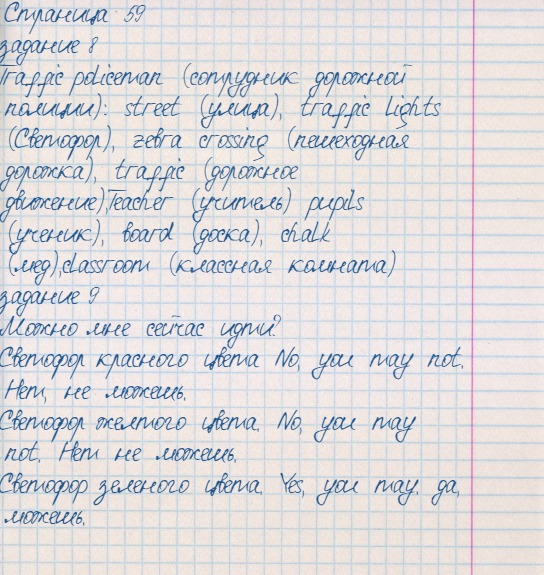 Страница 59
задание 8
Traffic policeman (сотрудник дорожной
полиции): street (улица), traffic lights
(Светофор), zebra crossing (пешеходная
дорожка), traffic (дорожное
движение),Teacher (учитель) pupils
(ученик), board (доска), chalk
(мел),classroom (классная комната)
задание 9
Можно мне сейчас идти?
Светофор красного цвета No, you may not.
Нет, не можешь.
Светофор желтого цвета. No, you may
not. Нет не можешь.
Светофор зеленого цвета. Yes, you may. да,
можешь.